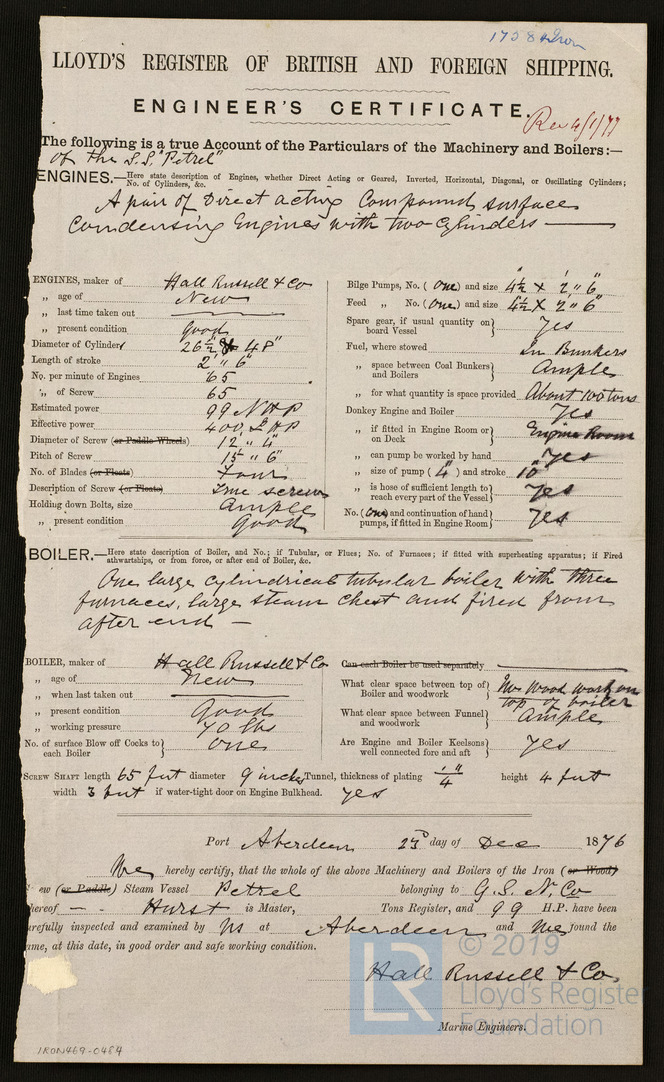 1758 Iron
LLOYD'S REGISTER OF BRITISH AND FOREIGN SHIPPING.
ENGINEER'S CERTIFICATE.
Rec 4/1/77
The following is a true Account of the Particulars of the Machinery and Boilers:—
of the S.S. "Petrel"
ENGINES.—Here state description of Engines, whether Direct Acting or Geared, Inverted, Horizontal, Diagonal, or Oscillating Cylinders;
No. of Cylinders, &c.
A pair of Direct acting Compound surface
Condensing Engines with two Cylinders —
ENGINES, maker of Hall Russell & Co
„ age of New
„ last time taken out —
„ present condition good
Diameter of Cylinders 26½" & 48"
Length of stroke 2 " 6"
No. per minute of Engines 65
„ of Screw 65
Estimated power 99 NHP
Effective power 400 I HP
Diameter of Screw (or Paddle Wheels) 12 " 4"
Pitch of Screw 15 " 6"
No. of Blades (or Floats) Four
Description of Screw (or Floats) True screw
Holding down Bolts, size Ample
„ present condition Good
Bilge Pumps, No. (One) and size 4½ X 2 " 6"
Feed „ No. (One) and size 4½ X 2 " 6"
Spare gear, if usual quantity on board Vessel} Yes
Fuel, where stowed In Bunkers
„ space between Coal Bunkers and Boilers} Ample
„ for what quantity is space provided About 100 tons
Donkey Engine and Boiler Yes
„ if fitted in Engine Room or on Deck} Engine Room
„ can pump be worked by hand Yes
„ size of pump (4") and stroke 10"
„ is hose of sufficient length to reach every part of the Vessel} Yes
No. (One) and continuation of hand pumps, if fitted in Engine Room} Yes
BOILER.—Here state description of Boiler, and No.; if Tubular, or Flues; No. of Furnaces; if fitted with superheating apparatus; if Fired
athwartships, or from fore, or after end of Boiler, &c.
One large cylindrical tubular boiler with three
furnaces, large steam chest and fired from
after end —
BOILER, maker of Hall Russell & Co
„ age of New
„ when last taken out —
„ present condition Good
„ working pressure 70 lbs
No. of surface Blow off Cocks to each Boiler} One
Can each Boiler be used separately —
What clear space between top of Boiler and woodwork} No wood work on top of boiler
What clear space between Funnel and woodwork} Ample
Are Engine and Boiler Keelsons well connected fore and aft} Yes
SCREW SHAFT length 65 feet diameter 9 inches Tunnel, thickness of plating ¼" height 4 feet
width 3 feet if water-tight door on Engine Bulkhead. Yes
Port Aberdeen 23d day of Dec 1876
We hereby certify, that the whole of the above Machinery and Boilers of the Iron (or Wood)
ew (or Paddle) Steam Vessel Petrel belonging to G.S.N.Co
hereof — Hurst is Master, Tons Register, and 99 H.P. have been
arefully inspected and examined by us at Aberdeen and we found the
ame, at this date, in good order and safe working condition.
Hall Russell & Co
Marine Engineers.
LR © 2019
Lloyd's Register
Foundation
IRON469-0484